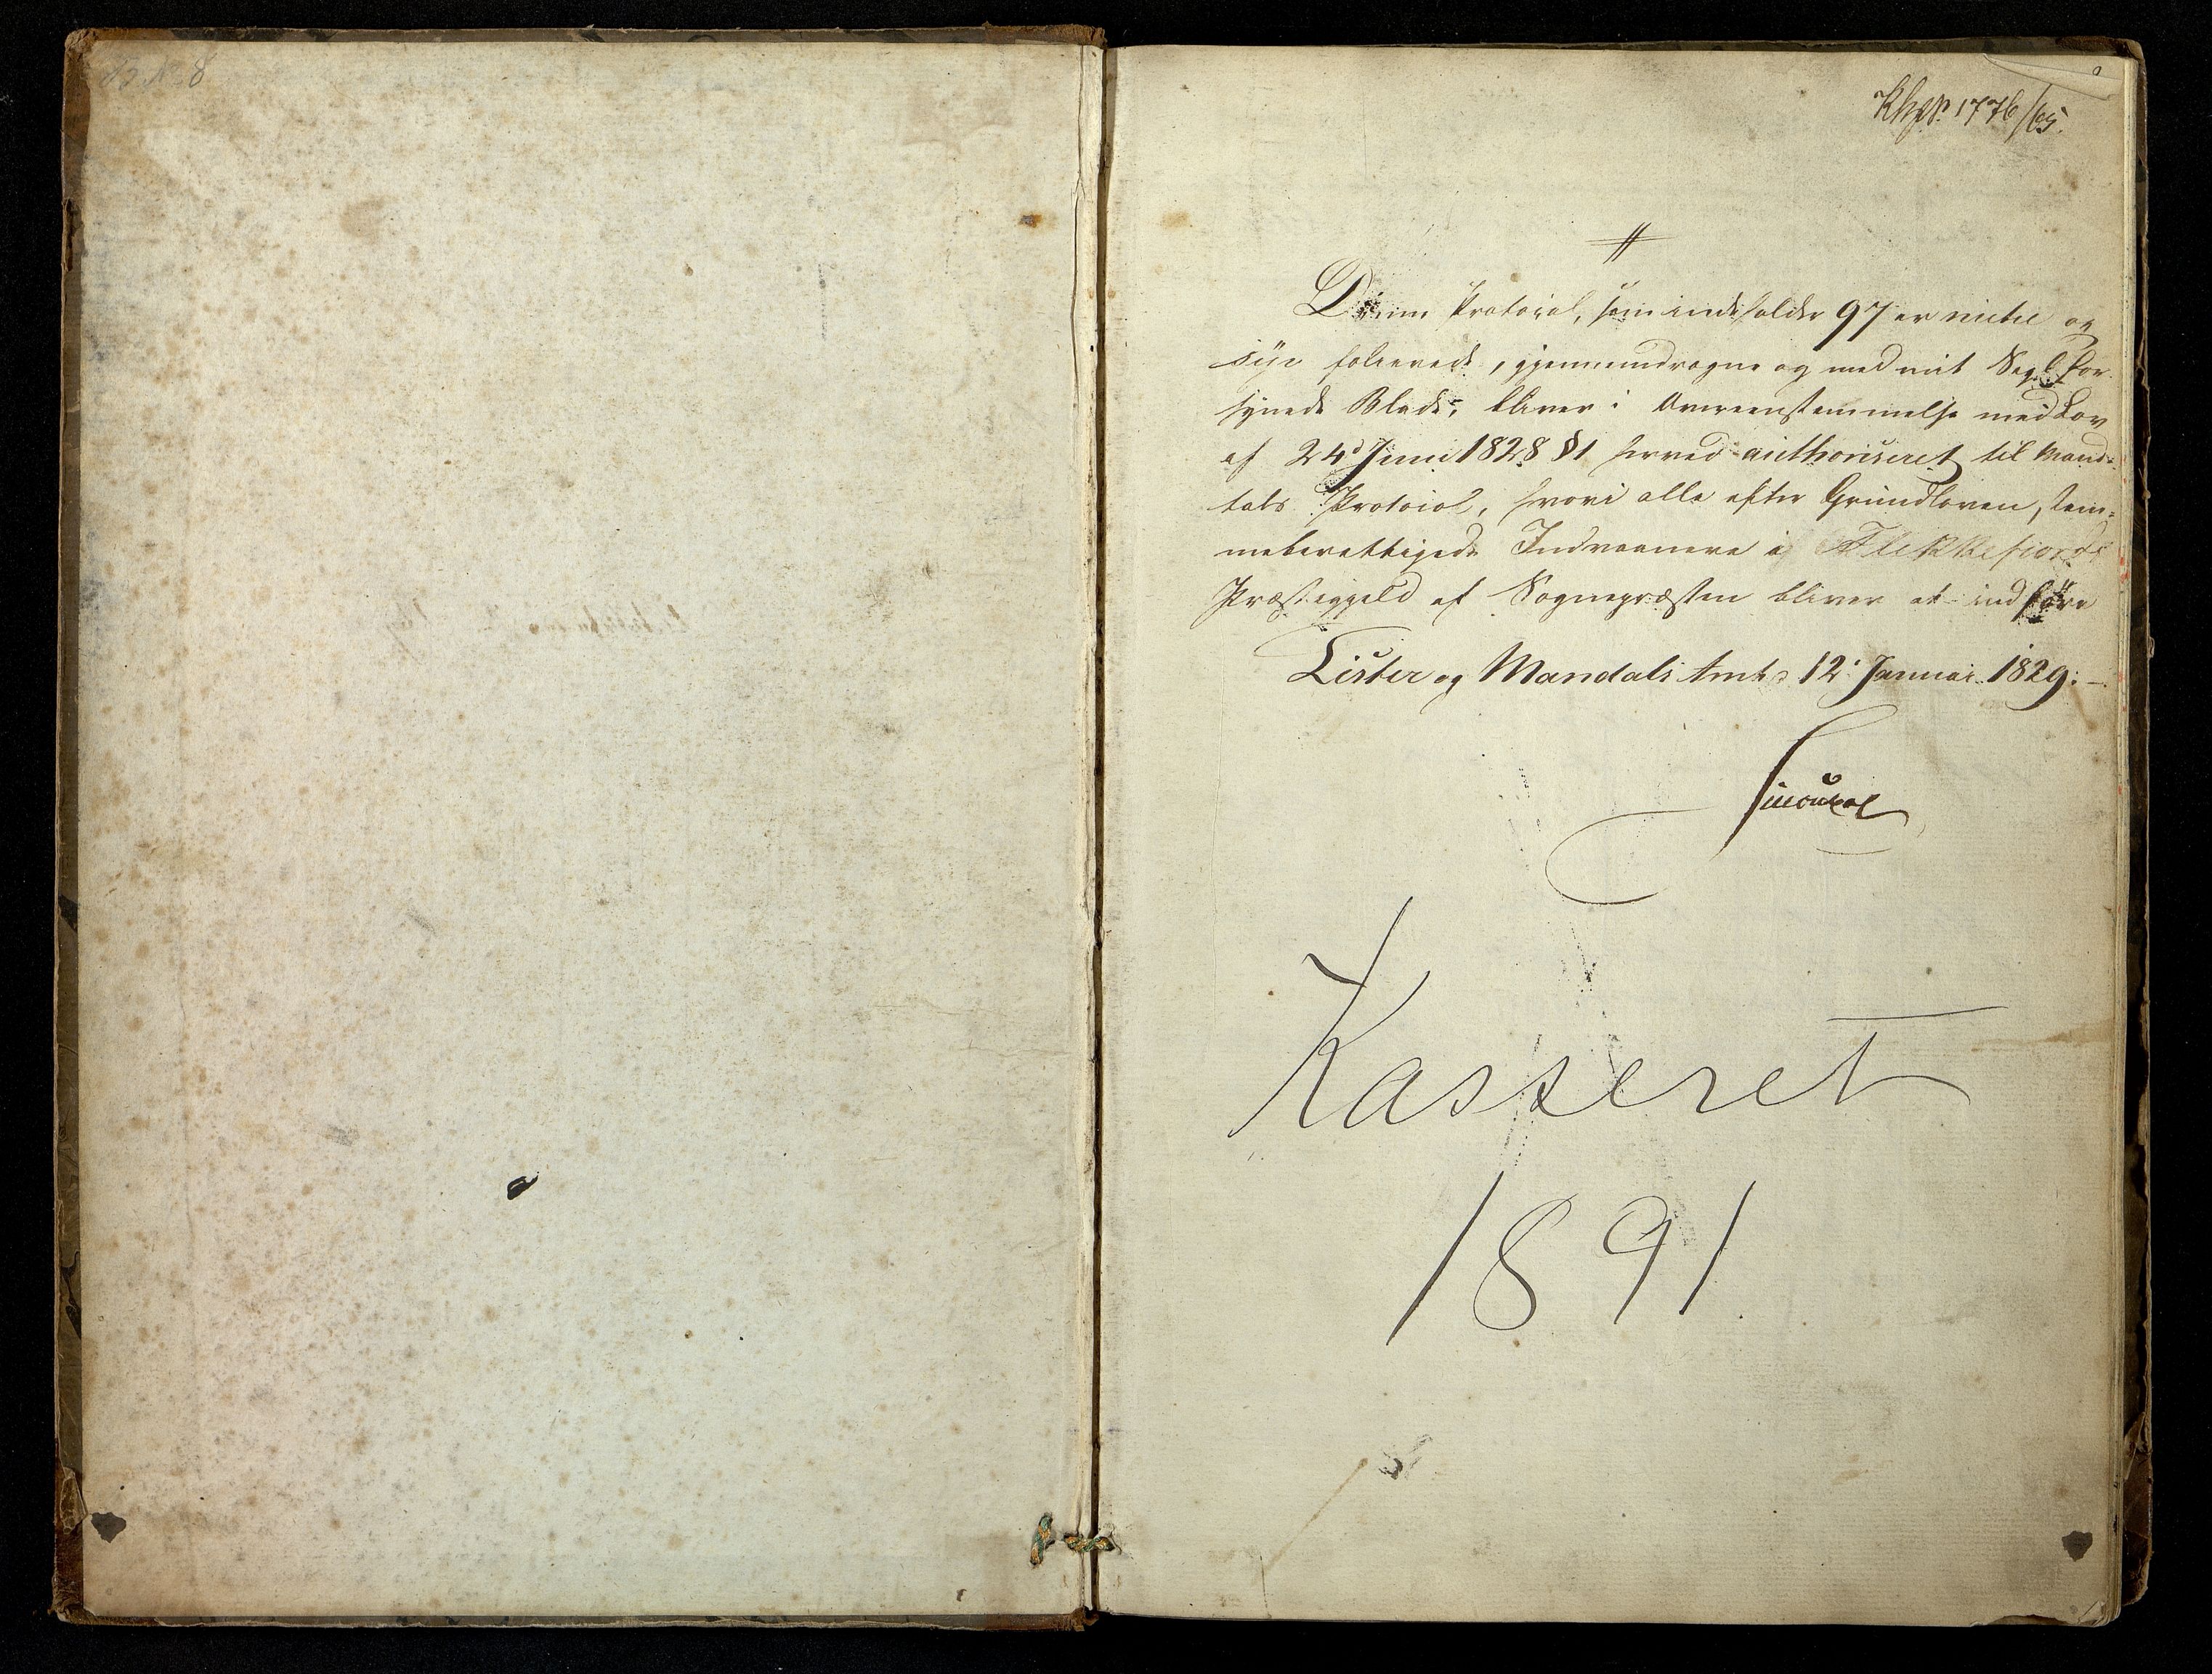 No 8
Khgr. 1776/65.
Denne Protocol, som indeholder 97 er nitti og
syv folierede, gjennemdragne og med mit Segl for-
synede Blade, bliver i Overeensstemmelse med Lov
af 24d Juni 1828 §1 herved authoriseret til Mand-
tals Protocol, hvori alle efter Grundloven stem-
meberettigede Indvaanere i Flekkefjords
Præstegjeld af Sognepræsten bliver at indføre
Lister og Mandals Amt 12 Januar 1829.
Kasseret
1891